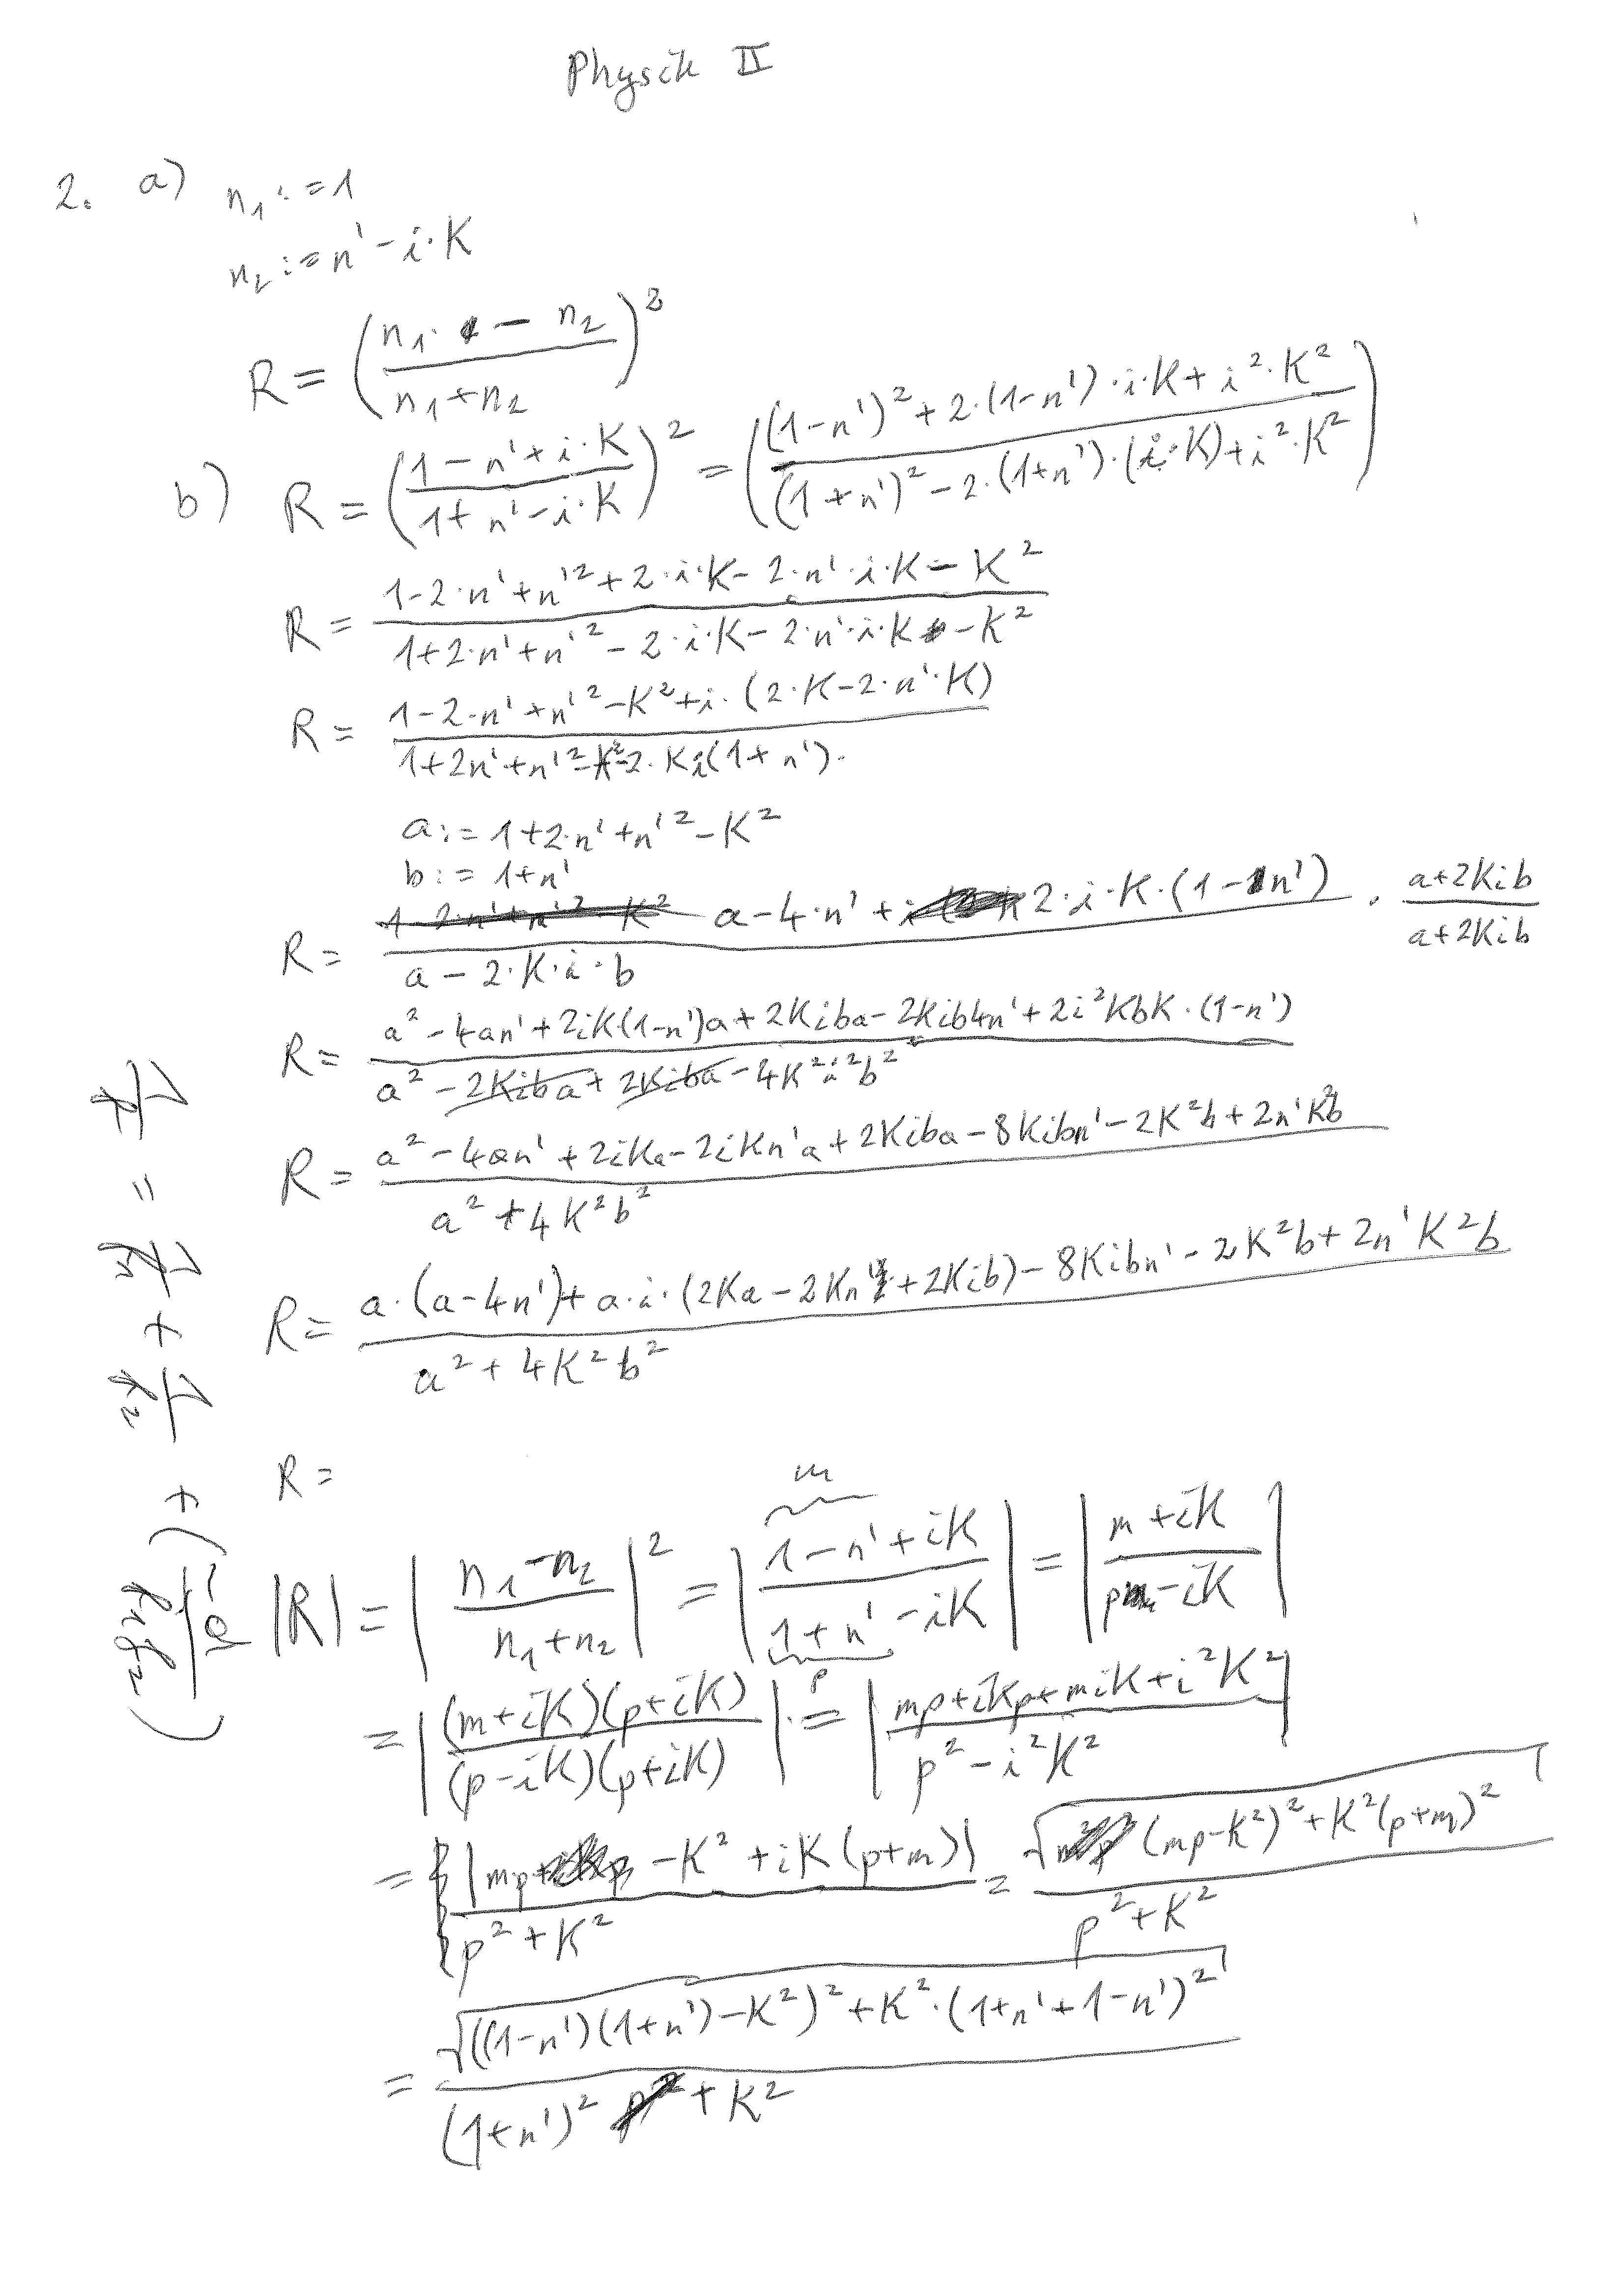 Physik II
2. a) n₁ := 1
n₂ := n' - i·K
R = ((n₁ - n₂)/(n₁+n₂))²
b) R = ((1-n'+i·K)/(1+n'-i·K))² = (((1-n')²+2·(1-n')·i·K+i²·K²)/((1+n')²-2·(1+n')·(i·K)+i²·K²))
R = (1-2·n'+n'²+2·i·K-2·n'·i·K-K²)/(1+2·n'+n'²-2·i·K-2·n'·i·K-K²)
R = (1-2·n'+n'²-K²+i·(2·K-2·n'·K))/(1+2n'+n'²-K²-2·Ki(1+n'))
a := 1+2·n'+n'²-K²
b := 1+n'
R = (a-4·n'+2·i·K·(1-n'))/(a-2·K·i·b) · (a+2Kib)/(a+2Kib)
R = (a²-4an'+2iK(1-n')a+2Kiba-2Kib4n'+2i²KbK·(1-n'))/(a²-2Kiba+2Kiba-4K²i²b²)
R = (a²-4an'+2iKa-2iKn'a+2Kiba-8Kibn'-2K²b+2n'K²b)/(a²+4K²b²)
R = (a·(a-4n')+a·i·(2Ka-2Kn'+2Kib)-8Kibn'-2K²b+2n'K²b)/(a²+4K²b²)
R =
|R| = |(n₁-n₂)/(n₁+n₂)|² = |(1-n'+iK)/(1+n'-iK)| = |(m+iK)/(p-iK)|
m
p
= |((m+iK)(p+iK))/((p-iK)(p+iK))| = |(mp+iKp+miK+i²K²)/(p²-i²K²)|
= |mp-K²+iK(p+m)|/(p²+K²) = √((mp-K²)²+K²(p+m)²)/(p²+K²)
= √(((1-n')(1+n')-K²)²+K²·(1+n'+1-n')²)/((1+n')²+K²)
1/f = 1/f₁ + 1/f₂ + (-d/(f₁f₂))